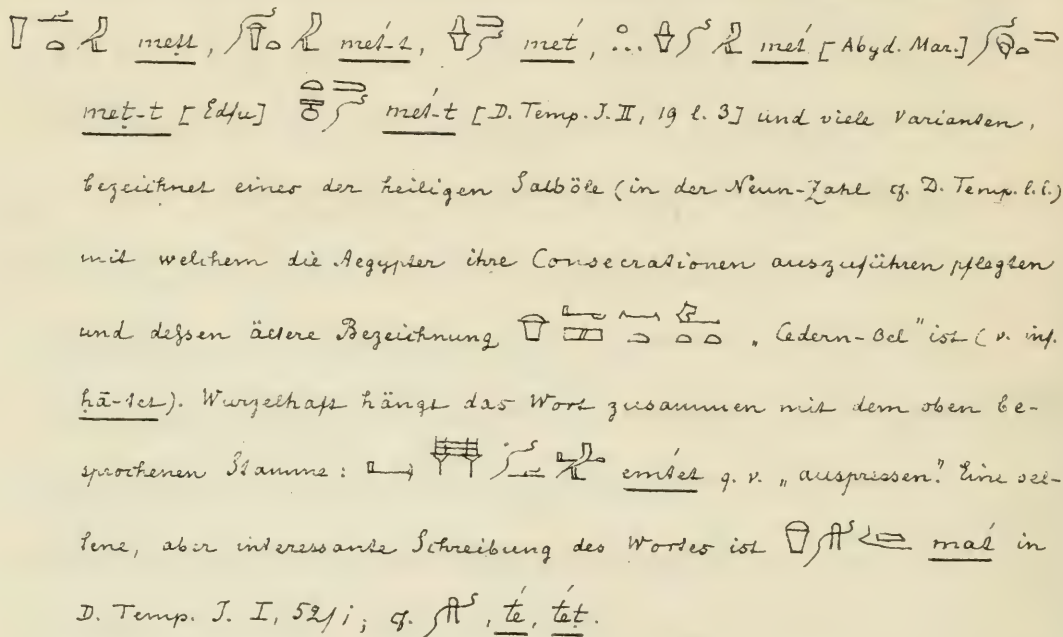 meṭt, meť-t, meť, meť [Abyd. Mar.]
meṭ-t [Edfu] meť-t [D. Temp. J. II, 19 l. 3] und viele Varianten,
bezeichnet eines der heiligen Salböle (in der Neun-Zahl cf. D. Temp. l. l.)
mit welchem die Aegypter ihre Consecrationen auszuführen pflegten
und deßen ältere Bezeichnung „Cedern-Oel" ist (v. inf.
ḥā-tet). Wurzelhaft hängt das Wort zusammen mit dem oben be-
sprochenen Stamme: q. v. „auspressen." Eine sel-
tene, aber interessante Schreibung des Wortes ist in
D. Temp. J. I, 52/i; cf. , ťe, ťeṭ.